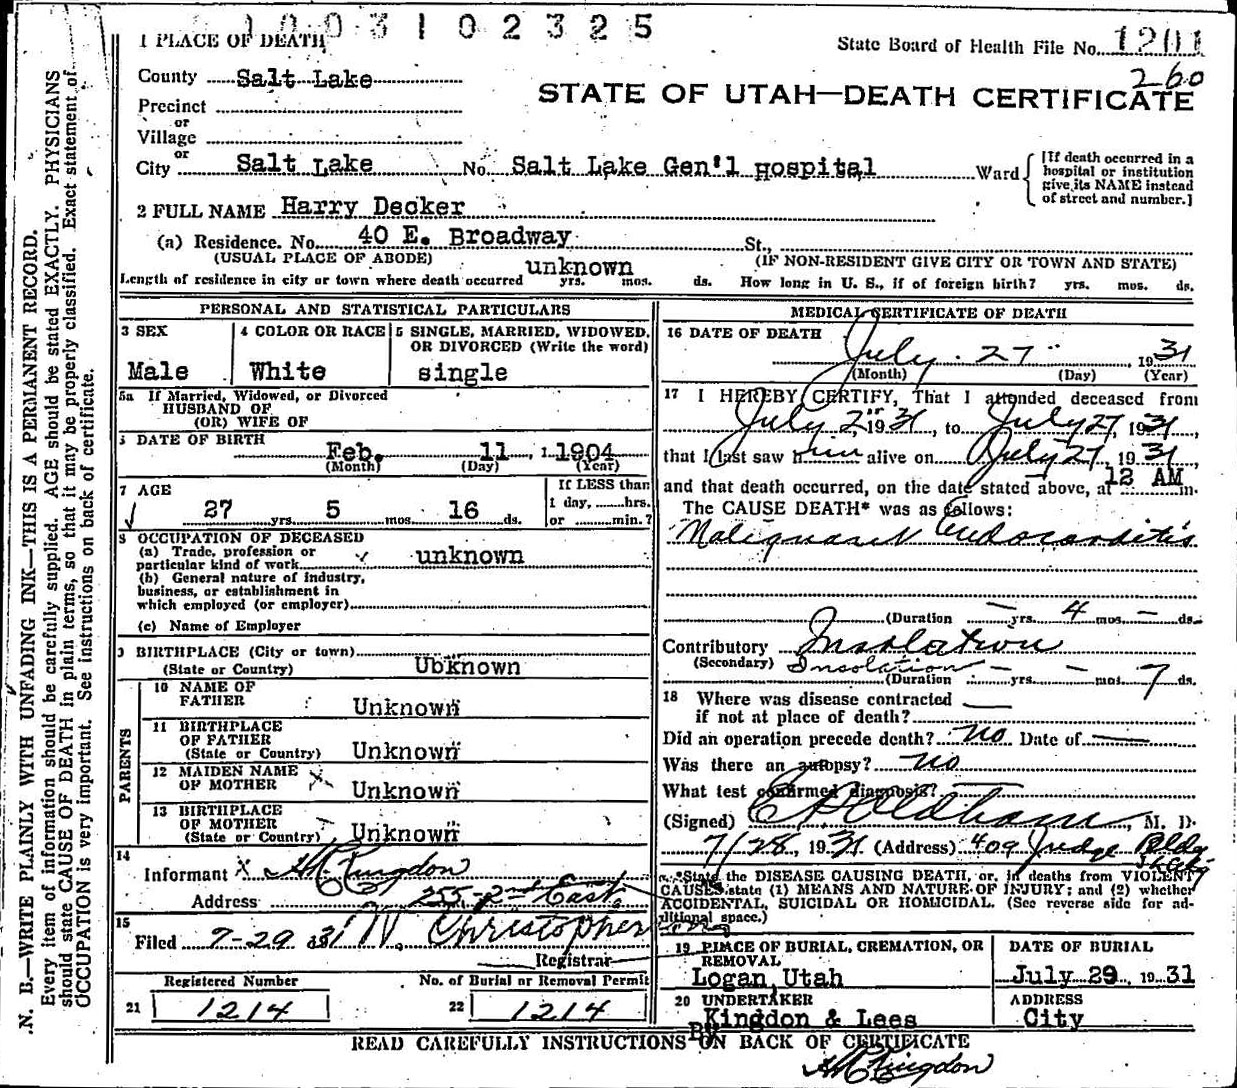 1003102325
1 PLACE OF DEATH
State Board of Health File No. 1201
260
County Salt Lake
STATE OF UTAH—DEATH CERTIFICATE
Precinct
or
Village
or
City Salt Lake No. Salt Lake Gen'l Hospital Ward
[If death occurred in a hospital or institution give its NAME instead of street and number.]
2 FULL NAME Harry Decker
(a) Residence. No. 40 E. Broadway St.,
(USUAL PLACE OF ABODE) (IF NON-RESIDENT GIVE CITY OR TOWN AND STATE)
Length of residence in city or town where death occurred unknown yrs. mos. ds. How long in U. S., if of foreign birth? yrs. mos. ds.
PERSONAL AND STATISTICAL PARTICULARS
3 SEX 4 COLOR OR RACE 5 SINGLE, MARRIED, WIDOWED, OR DIVORCED (Write the word)
Male White single
5a If Married, Widowed, or Divorced
HUSBAND OF
(OR) WIFE OF
6 DATE OF BIRTH
Feb. 11 , 1 1904
(Month) (Day) (Year)
7 AGE If LESS than
27 yrs. 5 mos. 16 ds. 1 day, hrs.
or min.?
8 OCCUPATION OF DECEASED
(a) Trade, profession or
particular kind of work unknown
(b) General nature of industry,
business, or establishment in
which employed (or employer)
(c) Name of Employer
9 BIRTHPLACE (City or town)
(State or Country) Ubknown
PARENTS
10 NAME OF
FATHER Unknown
11 BIRTHPLACE
OF FATHER
(State or Country) Unknown
12 MAIDEN NAME
OF MOTHER Unknown
13 BIRTHPLACE
OF MOTHER
(State or Country) Unknown
14
Informant x H C Kingdon
Address 255-2nd East
15
Filed 7-29 31 W. Christopherson
Registrar
Registered Number No. of Burial or Removal Permit
21 1214 22 1214
MEDICAL CERTIFICATE OF DEATH
16 DATE OF DEATH
July 27 1931
(Month) (Day) (Year)
17 I HEREBY CERTIFY, That I attended deceased from
July 2, 1931, to July 27, 1931,
that I last saw him alive on July 27, 1931,
and that death occurred, on the date stated above, at 12 AM m.
The CAUSE DEATH* was as follows:
Malignant Endocarditis
(Duration — yrs. 4 mos. — ds.
Contributory Insolation
(Secondary) Insolation
(Duration — yrs. — mos. 7 ds.
18 Where was disease contracted
if not at place of death? —
Did an operation precede death? no Date of —
Was there an autopsy? no
What test confirmed diagnosis?
(Signed) Oldham, M. D.
7/28, 1931 (Address) 409 Judge Bldg
*State the DISEASE CAUSING DEATH, or, in deaths from VIOLENT
CAUSES state (1) MEANS AND NATURE OF INJURY; and (2) whether
ACCIDENTAL, SUICIDAL OR HOMICIDAL. (See reverse side for ad-
ditional space.)
19 PLACE OF BURIAL, CREMATION, OR REMOVAL DATE OF BURIAL
Logan, Utah July 29, 1931
20 UNDERTAKER ADDRESS
Kingdon & Lees City
By
READ CAREFULLY INSTRUCTIONS ON BACK OF CERTIFICATE
H C Kingdon
N. B.—WRITE PLAINLY WITH UNFADING INK—THIS IS A PERMANENT RECORD.
Every item of information should be carefully supplied. AGE should be stated EXACTLY. PHYSICIANS
should state CAUSE OF DEATH in plain terms, so that it may be properly classified. Exact statement of
OCCUPATION is very important. See instructions on back of certificate.